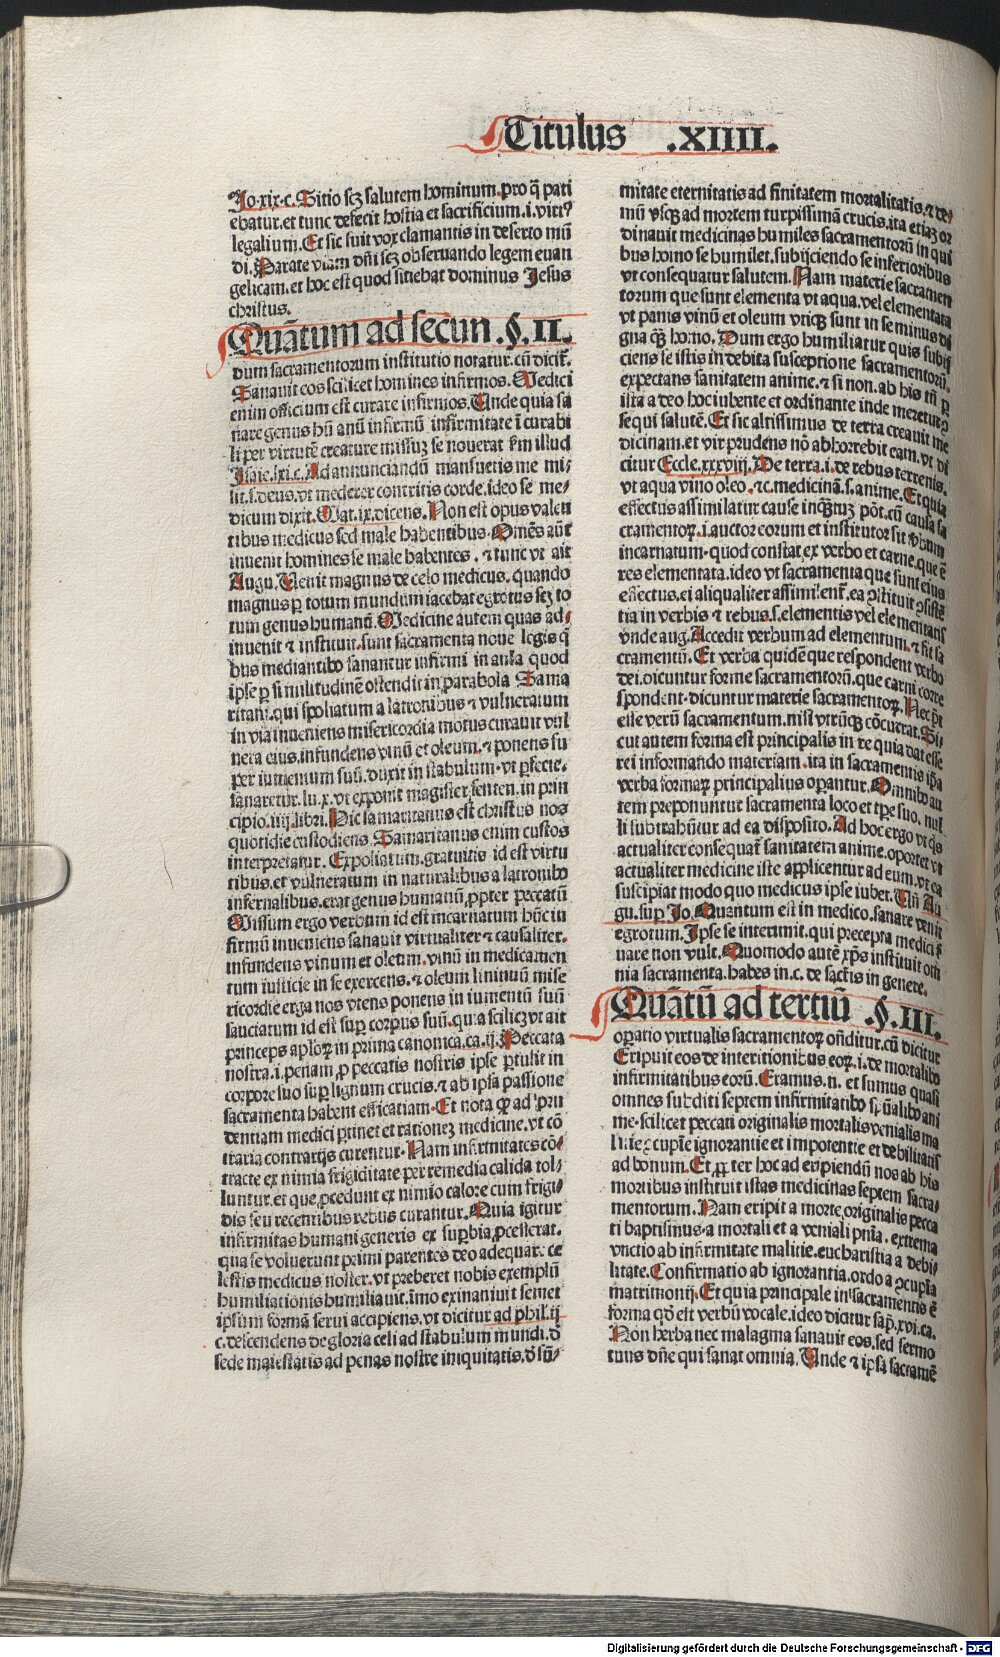 Titulus .XIIII.
Jo.xix.c. Sitio scz salutem hominum.pro q̄ pati
ebatur.et tunc defecit hostia et sacrificium.i.virtꝰ
legalium. Et sic fuit vox clamantis in deserto mū
di. Parate viam dn̄i scz obseruando legem euan
gelicam.et hoc est quod sitiebat dominus Jesus
christus.
Quātum ad secun .§.II.
dum sacramentorum institutio notatur.cū dicit̄.
Sanauit eos scilicet homines infirmos. Medici
enim officium est curare infirmos. Unde quia sa
nare genus hūanū infirmū infirmitate īcurabi
li per virtutē creature missuꝫ se nouerat ẜm illud
Isaie.lxi.c. Ad annunciandū mansuetis me mi-
sit.s.deus.vt mederer contritis corde.ideo se me-
dicum dixit. Mat.ix.dicens. Non est opus valen
tibus medicus sed male habentibus. Om̄es aūt
inuenit homines se male habentes. ⁊ tunc vt ait
Augu. Uenit magnus de celo medicus. quando
magnus ꝑ totum mundum iacebat egrotus scz to
tum genus humanū. Medicine autem quas ad-
inuenit ⁊ instituit.sunt sacramenta noue legis q̇
bus mediantibꝰ sanantur infirmi in aīa quod
ipse ꝑ similitudinē ostendit in parabola Sama
ritani.qui spoliatum a latronibus ⁊ vulneratum
in via inueniens misericordia motus curauit vul
nera eius.infundens vinū et oleum.⁊ ponens su
per iumentum suū.duxit in stabulum.vt ꝑfecte.
sanaretur.lu.x.vt exponit magister senten.in prin
cipio.iiij.libri. Hic samaritanus est christus nos
quotidie custodiens. Samaritanus enim custos
interpretatur. Expoliatum.gratuitis id est virtu
tibus.et vulneratum in naturalibus a latronibꝰ
infernalibus.erat genus humanū ꝓpter peccatū
Missum ergo verbum id est incarnatum hūc in
firmū inueniens sanauit virtualiter ⁊ causaliter.
infundens vinum et oleum.vinū in medicamen
tum iusticie in se exercens.⁊ oleum liniuū mise
ricordie erga nos vtens ponens in iumentū suū
sauciatum id est suꝑ corpus suū.quia scilicꝫ vt ait
princeps aplōꝝ in prima canonica.ca.ij. Peccata
nostra.i.penam ꝓ peccatis nostris ipse ꝑtulit in
corpore suo suꝑ lignum crucis.⁊ ab ipsa passione
sacramenta habent efficatiam. Et nota ꝙ ad pru
dentiam medici ꝑtinet et rationeꝫ medicine.vt cō
traria contrarijs curentur. Nam infirmitates cō-
tracte ex nimia frigiditate per remedia calida tol-
luntur.et que ꝓcedunt ex nimio calore cum frigi-
dis seu recentibus rebus curantur. Quia igitur
infirmitas humani generis ex suꝑbia ꝓcesserat.
qua se voluerunt primi parentes deo adequare ce
lestis medicus noster.vt preberet nobis exemplū
humiliationis humiliauit.īmo exinaniuit semet
ipsum formā serui accipiens.vt dicitur ad phil.ij
c.descendens de gloria celi ad stabulum mundi.d̄
sede maiestatis ad penas nostre iniquitatis.d̄ sū-
mitate eternitatis ad finitatem mortalitatis.⁊ de-
mū vsqꝫ ad mortem turpissimā crucis.ita etiaꝫ or
dinauit medicinas humiles sacramentorū in qui
bus homo se humilet.subijciendo se inferioribus
vt consequatur salutem. Nam materie sacramen
torum que sunt elementa vt aqua.vel elementata
vt panis vinū et oleum vtiqꝫ sunt in se minus di
gna qꝫ homo. Dum ergo humiliatur quis subij
ciens se istis in debita susceptione sacramentorū.
expectans sanitatem anime.⁊ si non.ab his tn̄ ꝑ
ista a deo hoc iubente et ordinante inde meretur ꝯ
sequi salutē. Et sic altissimus de terra creauit me
dicinam.et vir prudens nō abhorrebit eam.vt di
citur Eccle.xxxviij. De terra.i.de rebus terrenis.
vt aqua vino oleo.⁊c.medicinā.s.anime. Et quia
effectus assimilatur cause inqꝫtuꝫ pōt.cū causa sa
cramentoꝝ.i.auctor eorum et institutor sit ṽbum
incarnatum.quod constat ex verbo et carne.que ē
res elementata.ideo vt sacramenta que sunt eius
effectus.ei aliqualiter assimilent̄.ea ꝯstituit ꝯsistē
tia in verbis ⁊ rebus.s.elementis vel elementatis
vnde aug. Accedit verbum ad elementum.⁊ fit sa
cramentū. Et verba quidē que respondent verbo
dei.dicuntur forme sacramentorū.que carni corre
spondent.dicuntur materie sacramentoꝝ. Nec pōt
esse verū sacramentum.nisi vtrūqꝫ cōcurrat. Si
cut autem forma est principalis in re quia dat esse
rei informando materiam.ita in sacramentis ipsa
verba formaꝝ principalius oꝑantur. Omnibꝰ au
tem preponuntur sacramenta loco et tꝑe suo. nul
li subtrahūtur ad ea disposito. Ad hoc ergo vt q̇s
actualiter consequat̄ sanitatem anime.oportet vt
actualiter medicine iste applicentur ad eum.vt ea
suscipiat modo quo medicus ipse iubet. Un̄ Au
gu.suꝑ Jo. Quantum est in medico.sanare venit
egrotum. Ipse se interimit.qui precepta medici ẜ
uare non vult. Quomodo autē xp̄s instituit om
nia sacramenta.habes in.c.de sactis in genere.
Quātū ad tertiū .§.III.
oꝑatio virtualis sacramentoꝝ oñditur.cū dicitur
Eripuit eos de interitionibus eoꝝ.i.de mortalibꝰ
infirmitatibus eorū. Eramus.n. et sumus quasi
omnes subditi septem infirmitatibꝰ sp̄ualibꝰ ani
me.scilicet peccati originalis mortalis venialis ma
licie ꝯcupīe ignorantie et impotentie et debilitatis
ad bonum. Et ꝓpter hoc ad eripiendū nos ab his
moribus instituit istas medicinas septem sacra-
mentorum. Nam eripit a morte originalis pecca
ti baptismus.a mortali et a veniali pn̄ia. extrema
vnctio ab infirmitate malitie.eucharistia a debi-
litate. Confirmatio ab ignorantia.ordo a ꝯcupīa
matrimonij. Et quia principale in sacramentis ē
forma qd̄ est verbū vocale.ideo dicitur sap̄.xvi.ca.
Non herba nec malagma sanauit eos.sed sermo
tuus dn̄e qui sanat omnia. Unde ⁊ ipsa sacramē
Digitalisierung gefördert durch die Deutsche Forschungsgemeinschaft - DFG